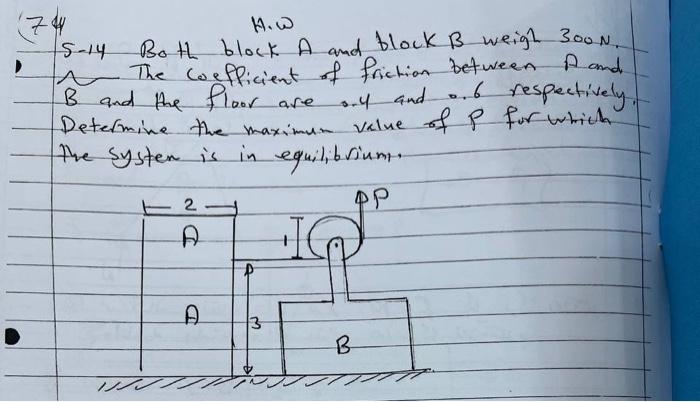 (74
H.W
5-14 Both block A and block B weigh 300 N.
The coefficient of friction between A and
B and the floor are 0.4 and 0.6 respectively.
Determine the maximum value of P for which
the system is in equilibrium.
2
P
A
1
A
3
B